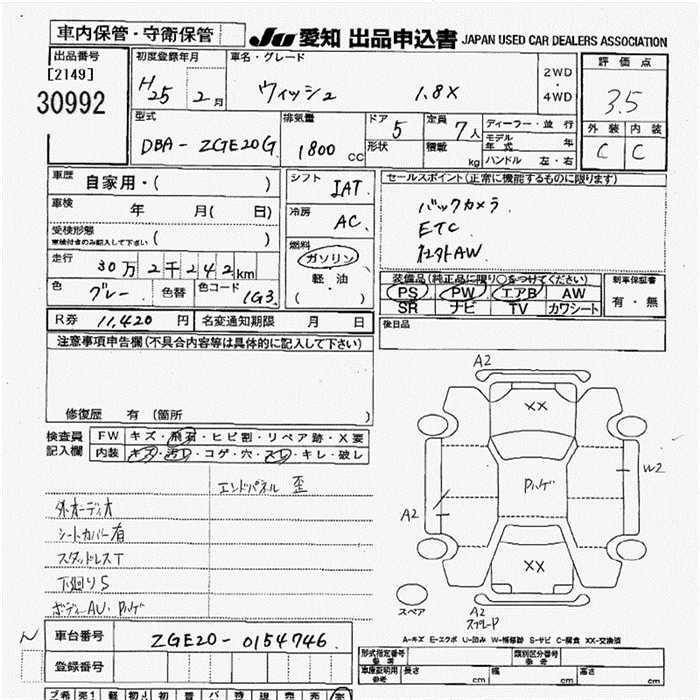 車内保管・守衛保管
JU 愛知 出品申込書 JAPAN USED CAR DEALERS ASSOCIATION
出品番号
[2149]
30992
初度登録年月
H25 2月
車名・グレード
ウィッシュ 1.8X
2WD
・
4WD
評価点
3.5
外装 内装
C C
型式
DBA-ZGE20G
排気量
1800 cc
ドア 5
形状
定員 7人
積載 kg
ディーラー・並行
モデル年式 年
ハンドル 左・右
車歴 自家用・( )
車検 年 月( 日)
受検形態
車検付きのみ記入して下さい ( )
走行 30万2千242km
色 グレー 色替 色コード 1G3
シフト IAT
冷房 AC
燃料
ガソリン
軽・油
( )
セールスポイント(正常に機能するものに限ります)
バックカメラ
ETC
社外AW
装備品(純正品に限り○をつけてください)
PS PW エアB AW
SR ナビ TV カワシート
新車保証書
有・無
R券 11,420円 名変通知期限 月 日
後日品
注意事項申告欄(不具合内容等は具体的に記入して下さい)
修復歴 有(箇所 )
検査員
記入欄
FW キズ・飛石・ヒビ割・リペア跡・X要
内装 キズ・汚レ・コゲ・穴・スレ・キレ・破レ
エンドパネル 歪
外オーディオ
シートカバー有
スタッドレスT
下廻りS
ボディーAU・Pハゲ
A2
XX
W2
Pハゲ
A2
XX
スペア
A2
スプレーP
A-キズ E-エクボ U-凹み W-補修跡 S-サビ C-腐食 XX-交換済
車台番号 ZGE20-0154746
登録番号
形式指定番号
類別区分番号
車庫証明用 長さ cm 幅 cm 高さ cm